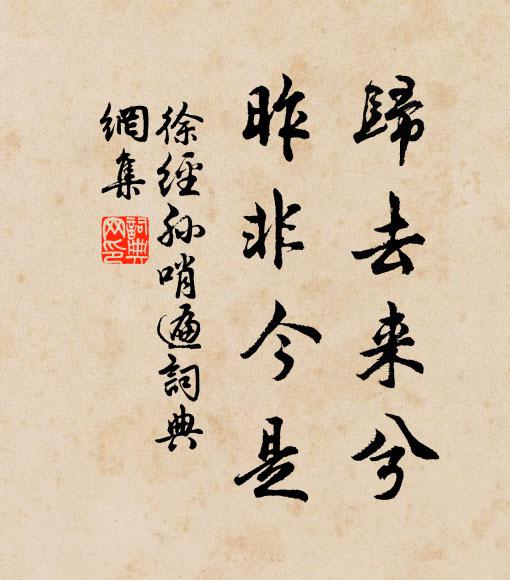 歸去来兮
昨非今是
徐經孙哨遍詞典
網集
詞典网印